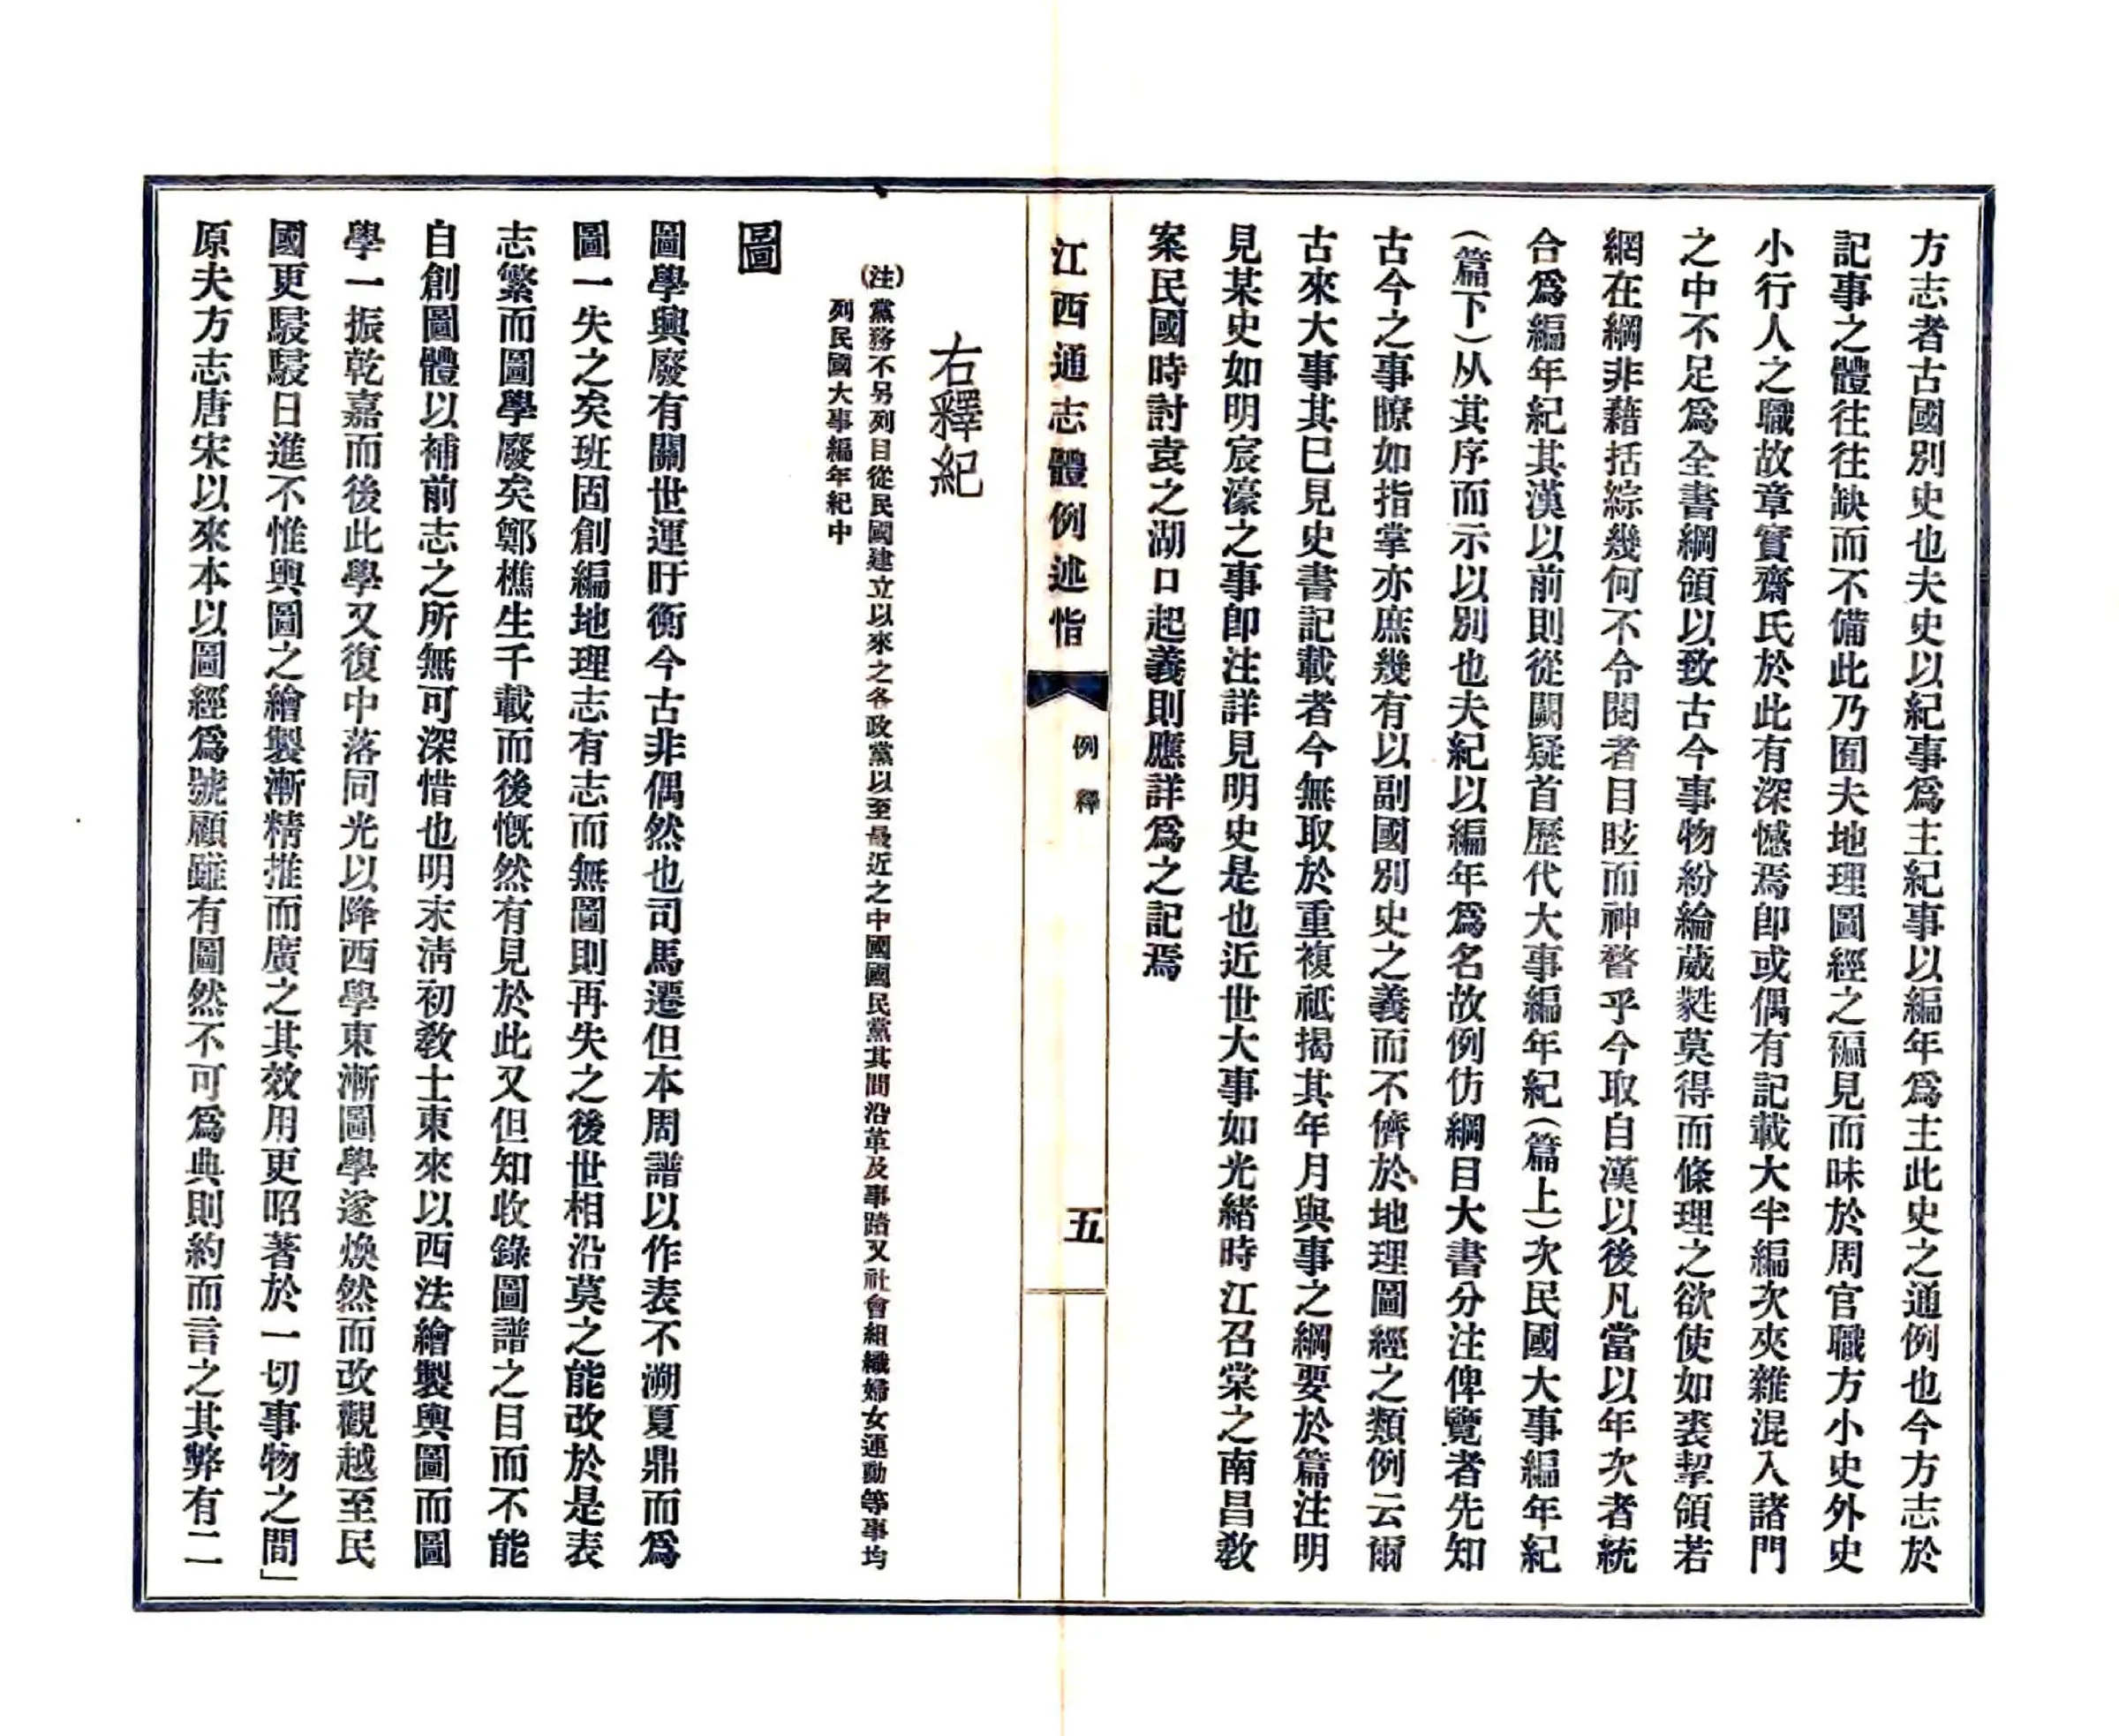 方志者古國別史也夫史以紀事爲主紀事以編年爲主此史之通例也今方志於
記事之體往往缺而不備此乃囿夫地理圖經之褊見而昧於周官職方小史外史
小行人之職故章實齋氏於此有深憾焉卽或偶有記載大半編次夾雜混入諸門
之中不足爲全書綱領以致古今事物紛綸葳蕤莫得而條理之欲使如裘挈領若
網在綱非藉括綜幾何不令閱者目眩而神瞀乎今取自漢以後凡當以年次者統
合爲編年紀其漢以前則從闕疑首歷代大事編年紀(篇上)次民國大事編年紀
(篇下)从其序而示以別也夫紀以編年爲名故例仿綱目大書分注俾覽者先知
古今之事瞭如指掌亦庶幾有以副國別史之義而不儕於地理圖經之類例云爾
古來大事其巳見史書記載者今無取於重複祗揭其年月與事之綱要於篇注明
見某史如明宸濠之事卽注詳見明史是也近世大事如光緒時江召棠之南昌敎
案民國時討袁之湖口起義則應詳爲之記焉
江西通志體例述恉
例釋
五
右釋紀
(注)黨務不另列目從民國建立以來之各政黨以至最近之中國國民黨其間沿革及事蹟又社會組織婦女運動等事均
列民國大事編年紀中
圖
圖學興廢有關世運盱衡今古非偶然也司馬遷但本周譜以作表不溯夏鼎而爲
圖一失之矣班固創編地理志有志而無圖則再失之後世相沿莫之能改於是表
志繁而圖學廢矣鄭樵生千載而後慨然有見於此又但知收錄圖譜之目而不能
自創圖體以補前志之所無可深惜也明末淸初敎士東來以西法繪製輿圖而圖
學一振乾嘉而後此學又復中落同光以降西學東漸圖學遂煥然而改觀越至民
國更駸駸日進不惟輿圖之繪製漸精推而廣之其效用更昭著於一切事物之間」
原夫方志唐宋以來本以圖經爲號顧雖有圖然不可爲典則約而言之其弊有二